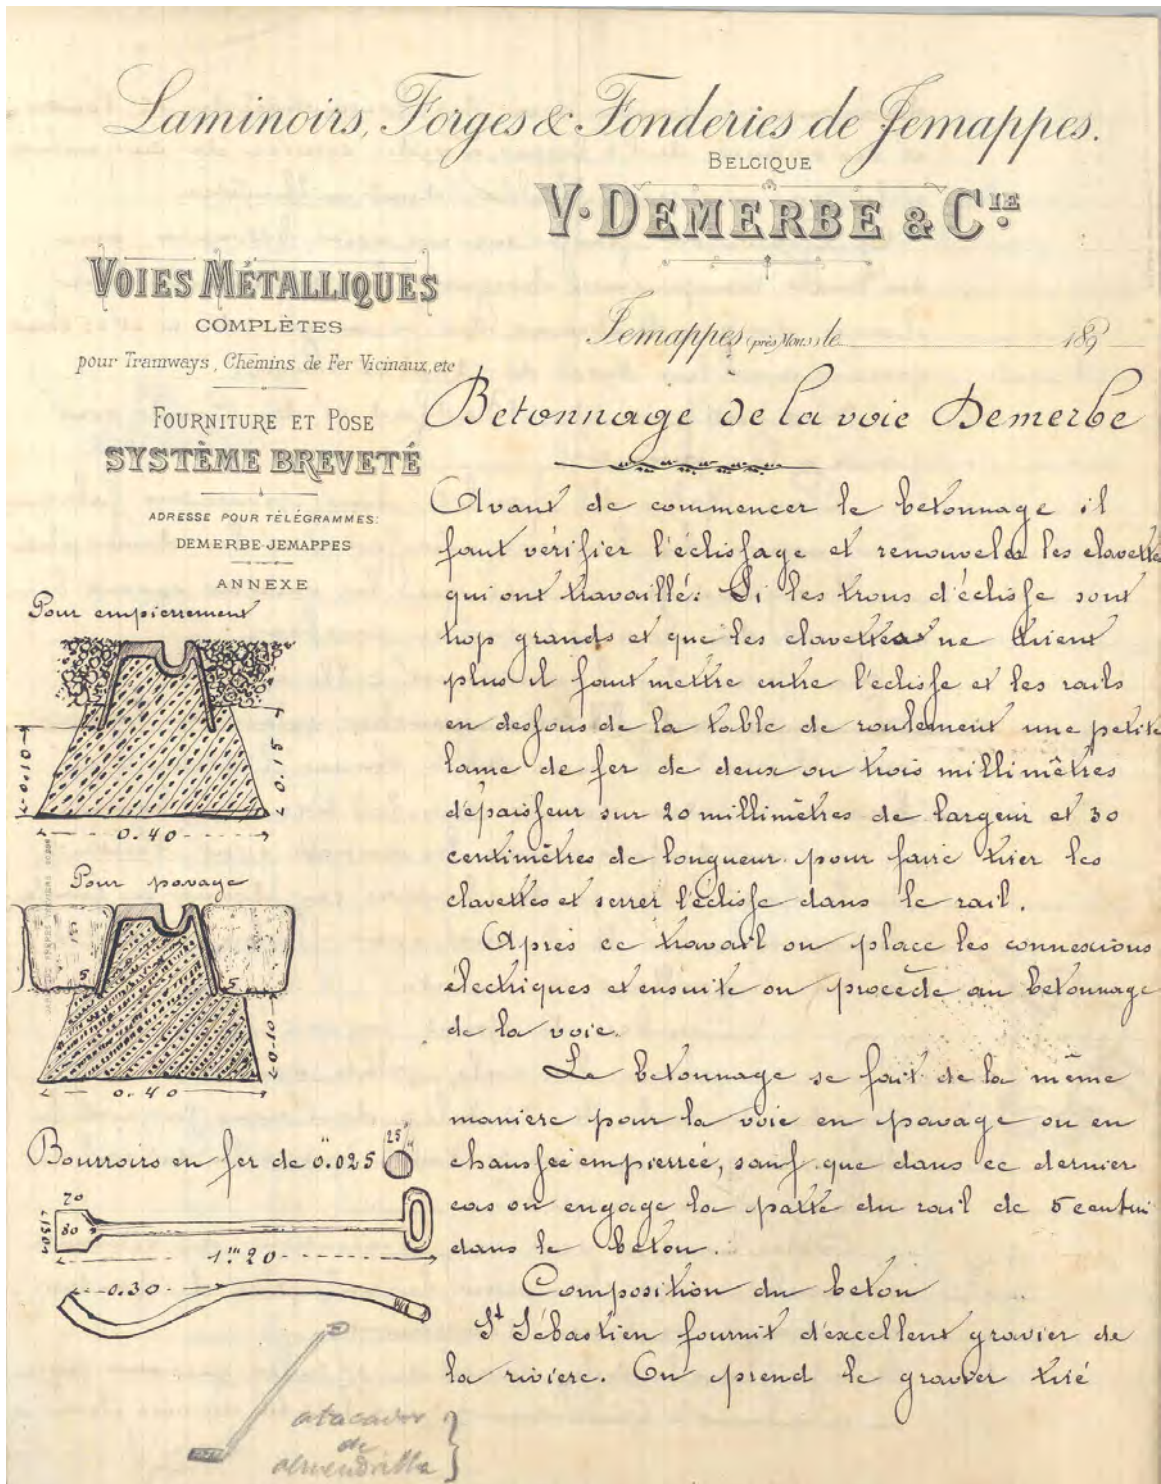 Laminoirs, Forges & Fonderies de Jemappes.
BELGIQUE
V. DEMERBE & CIE
VOIES MÉTALLIQUES
COMPLÈTES
pour Tramways, Chemins de Fer Vicinaux, etc
FOURNITURE ET POSE
SYSTÈME BREVETÉ
ADRESSE POUR TÉLÉGRAMMES:
DEMERBE-JEMAPPES
ANNEXE
Jemappes (près Mons) le 189
Betonnage de la voie Demerbe
Avant de commencer le betonnage il
faut vérifier l'éclissage et renouveler les clavettes
qui ont travaillé. Si les trous d'éclisse sont
trop grands et que les clavettes ne tirent
plus il faut mettre entre l'éclisse et les rails
en dessous de la table de roulement une petite
lame de fer de deux ou trois millimètres
d'épaisseur sur 20 millimètres de largeur et 30
centimètres de longueur pour faire tirer les
clavettes et serrer l'éclisse dans le rail.
Après ce travail on place les connexions
électriques et ensuite on procède au betonnage
de la voie.
Le betonnage se fait de la même
manière pour la voie en pavage ou en
chaussée empierrée, sauf que dans ce dernier
cas on engage la patte du rail de 5 centim
dans le beton.
Composition du beton
St Sébastien fournit d'excellent gravier de
la rivière. On prend le gravier
Pour empierrement
0.10
0.15
0.40
Pour pavage
5
5
0.10
0.40
Bourroirs en fer de 0.025
25
70
80
1m20
0.30
atacador
de
almendrilla